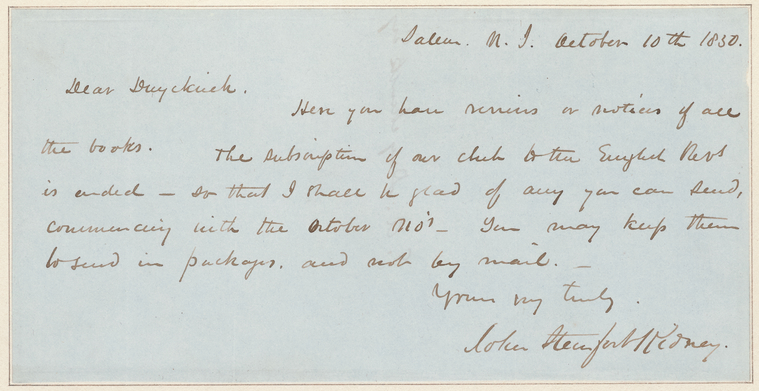 Salem. N. J. October 10th 1850.
Dear Duyckinck.
Here you have reviews or notices of all
the books. The subscription of our club to the English Revs
is ended — so that I shall be glad of any you can send,
commencing with the October No's — You may keep them
to send in packages. and not by mail. —
Yours very truly.
John Steinfort Kidney.